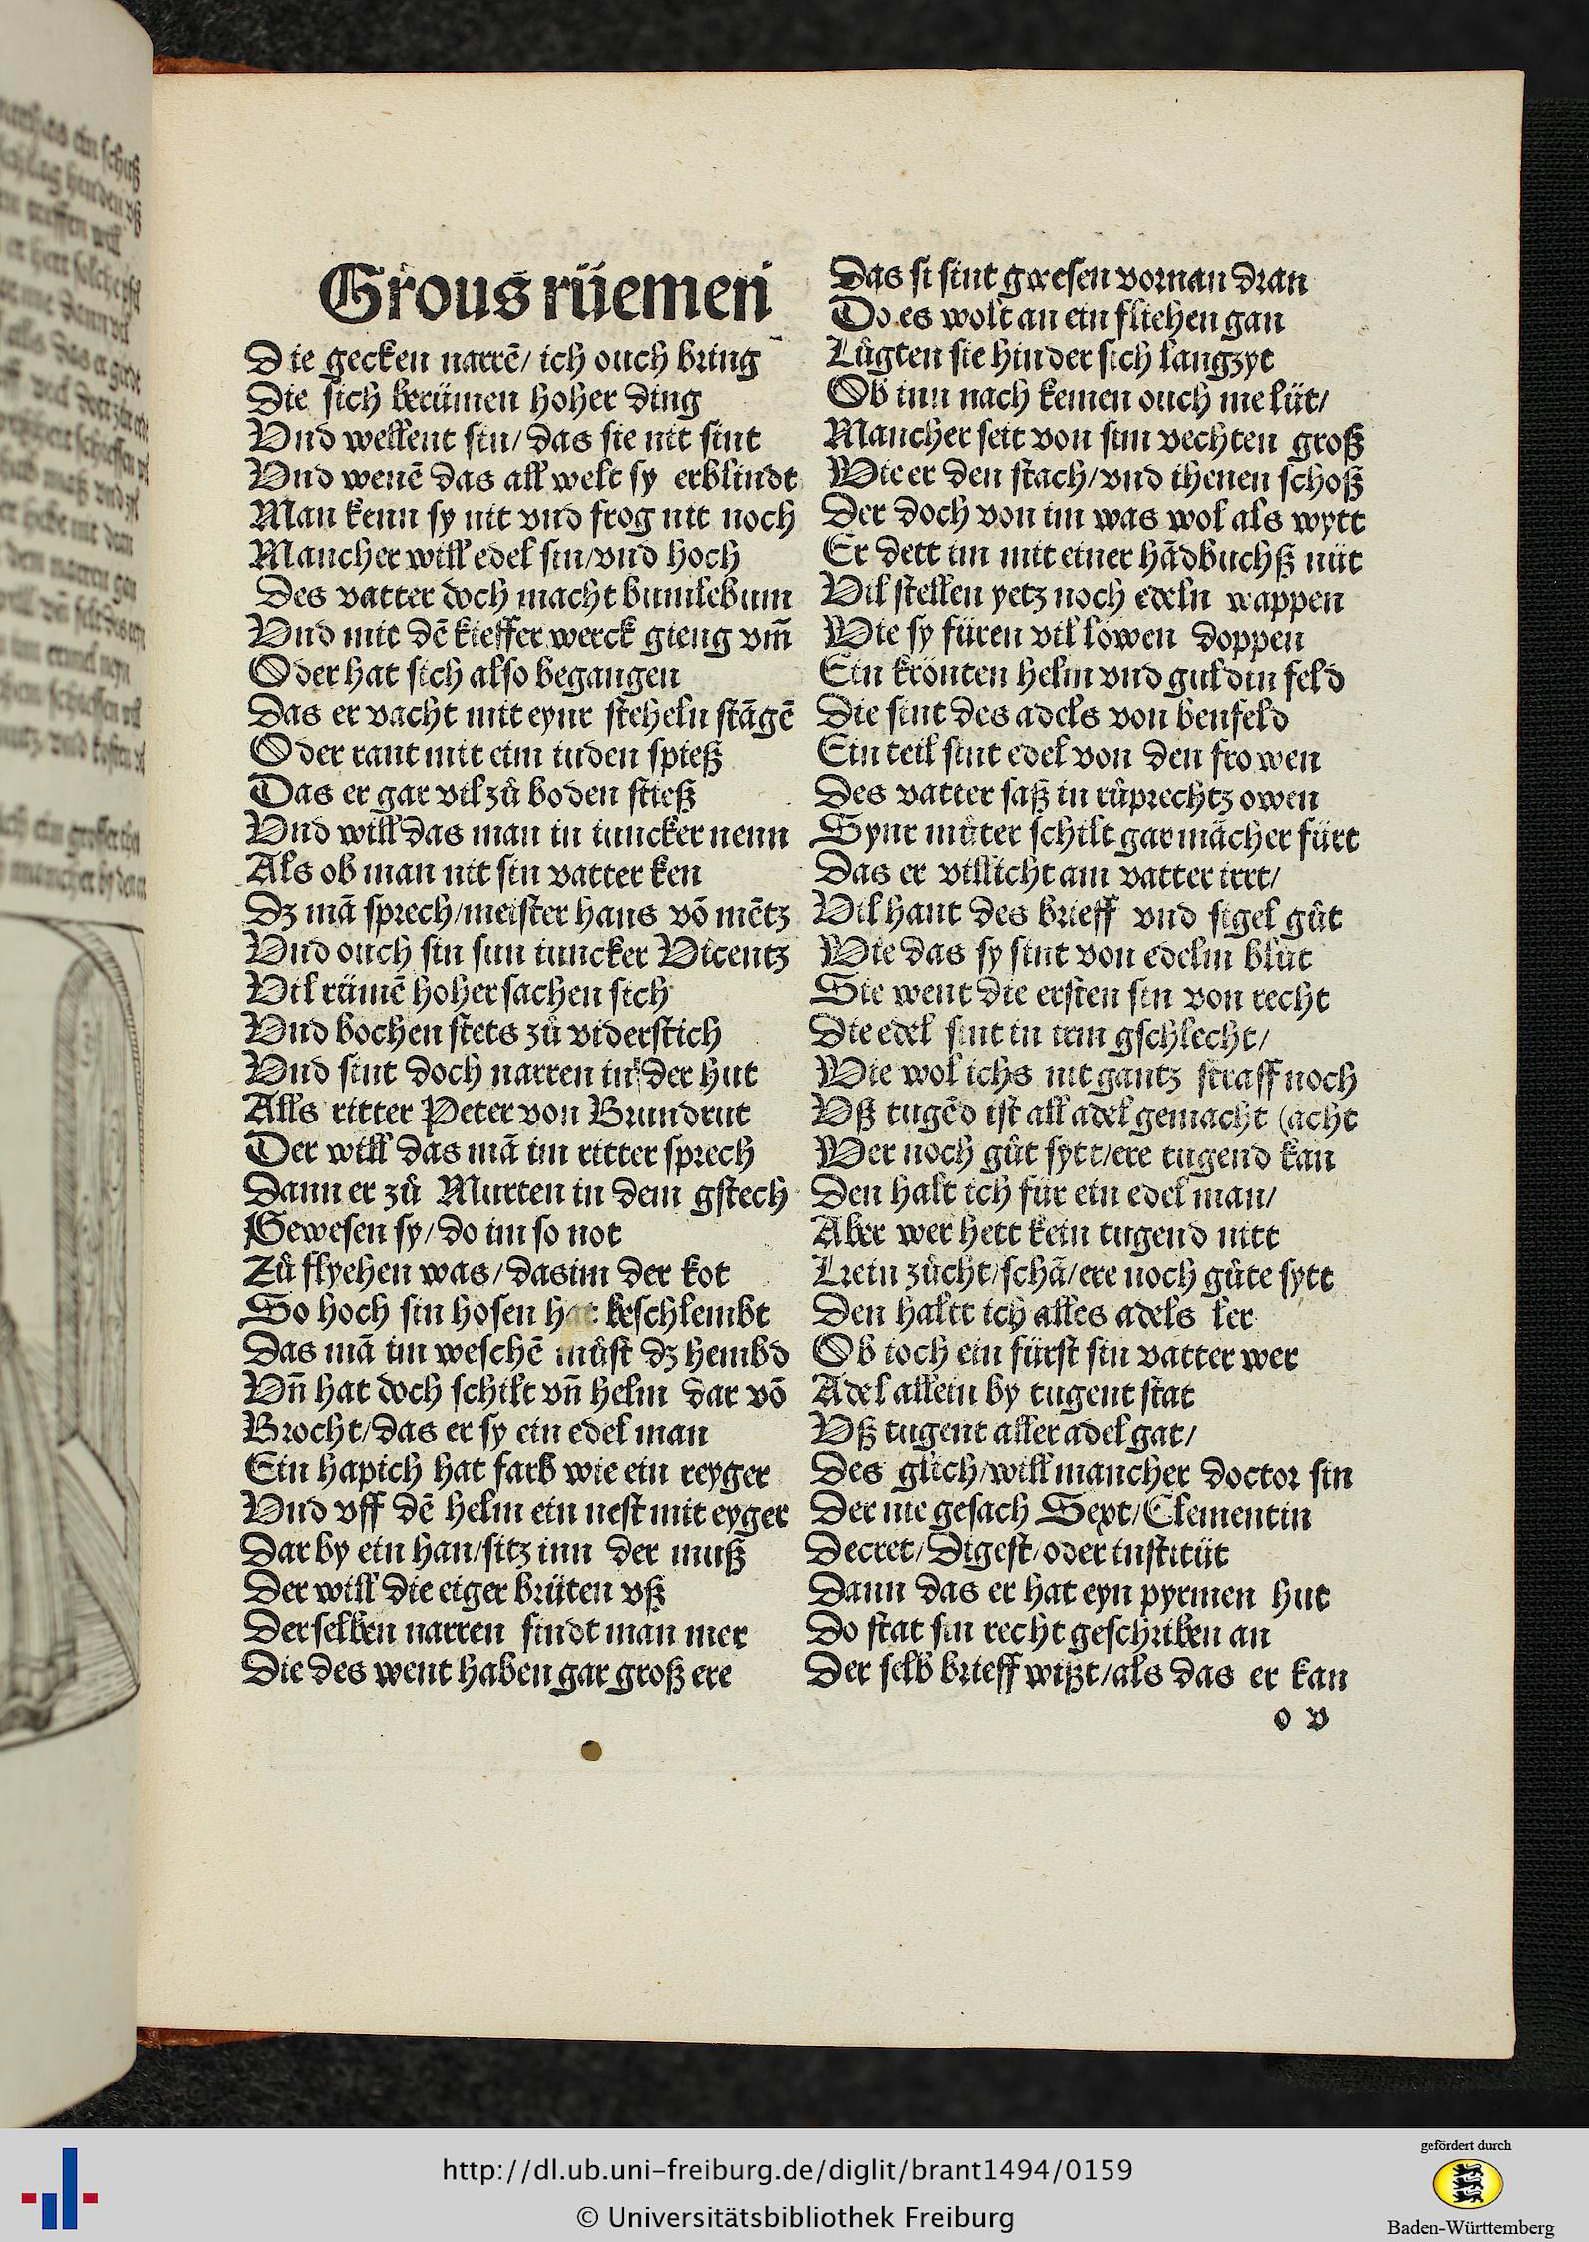 Grous rüemen
Die gecken narrē/ ich ouch bring
Die sich berümen hoher ding
Vnd wellent sin/ das sie nit sint
Vnd wenē das all welt sy erblindt
Man kenn sy nit vnd frog nit noch
Mancher will edel sin/vnd hoch
Des vatter doch macht bumlebum
Vnd mit dē kieffer werck gieng vm̄
Oder hat sich also begangen
Das er vacht mit eynr steheln stāgē
Oder rant mit eim iuden spieß
Das er gar vil zů boden stieß
Vnd will das man in iuncker nenn
Als ob man nit sin vatter ken
Dz mā sprech/meister hans vō mētz
Vnd ouch sin sun iuncker Vicentz
Vil rümē hoher sachen sich
Vnd bochen stets zů viderstich
Vnd sint doch narren in der hut
Alls ritter Peter von Brundrut
Der will das mā im ritter sprech
Dann er zů Murten in dem gstech
Gewesen sy/ do im so not
Zů flyehen was/ das im der kot
So hoch sin hosen hat beschlembt
Das mā im weschē můst dz hembd
Vn̄ hat doch schilt vn̄ helm dar vō
Brocht/das er sy ein edel man
Ein hapich hat farb wie ein reyger
Vnd vff dē helm ein nest mit eyger
Dar by ein han/sitz inn der muß
Der will die eiger brüten vß
Derselben narren findt man mer
Die des went haben gar groß ere
Das si sint gwesen vornan dran
Do es wolt an ein fliehen gan
Lůgten sie hinder sich langzyt
Ob inn nach kemen ouch me lüt/
Mancher seit von sim vechten groß
Wie er den stach/vnd ihenen schoß
Der doch von im was wol als wytt
Er dett im mit einer hādbuchß nüt
Vil stellen yetz noch edeln wappen
Wie sy füren vil löwen doppen
Ein krönten helm vnd guldin feld
Die sint des adels von benfeld
Ein teil sint edel von den frowen
Des vatter saß in růprechtz owen
Synr můter schilt gar mācher fürt
Das er villicht am vatter irrt/
Vil hant des brieff vnd sigel gůt
Wie das sy sint von edelm blůt
Sie went die ersten sin von recht
Die edel sint in irm gschlecht/
Wie wol ichs nit gantz straff noch
Vß tugēd ist all adel gemacht (acht
Wer noch gůt sytt/ere tugend kan
Den halt ich für ein edel man/
Aber wer hett kein tugend nitt
Kein zůcht/schā/ere noch gůte sytt
Den haltt ich alles adels ler
Ob ioch ein fürst sin vatter wer
Adel allein by tugent stat
Vß tugent aller adel gat/
Des glich/will mancher doctor sin
Der nie gesach Sext/Clementin
Decret/Digest/oder institüt
Dann das er hat eyn pyrmen hut
Do stat sin recht geschriben an
Der selb brieff wißt/als das er kan
o v
http://dl.ub.uni-freiburg.de/diglit/brant1494/0159
© Universitätsbibliothek Freiburg
gefördert durch
Baden-Württemberg